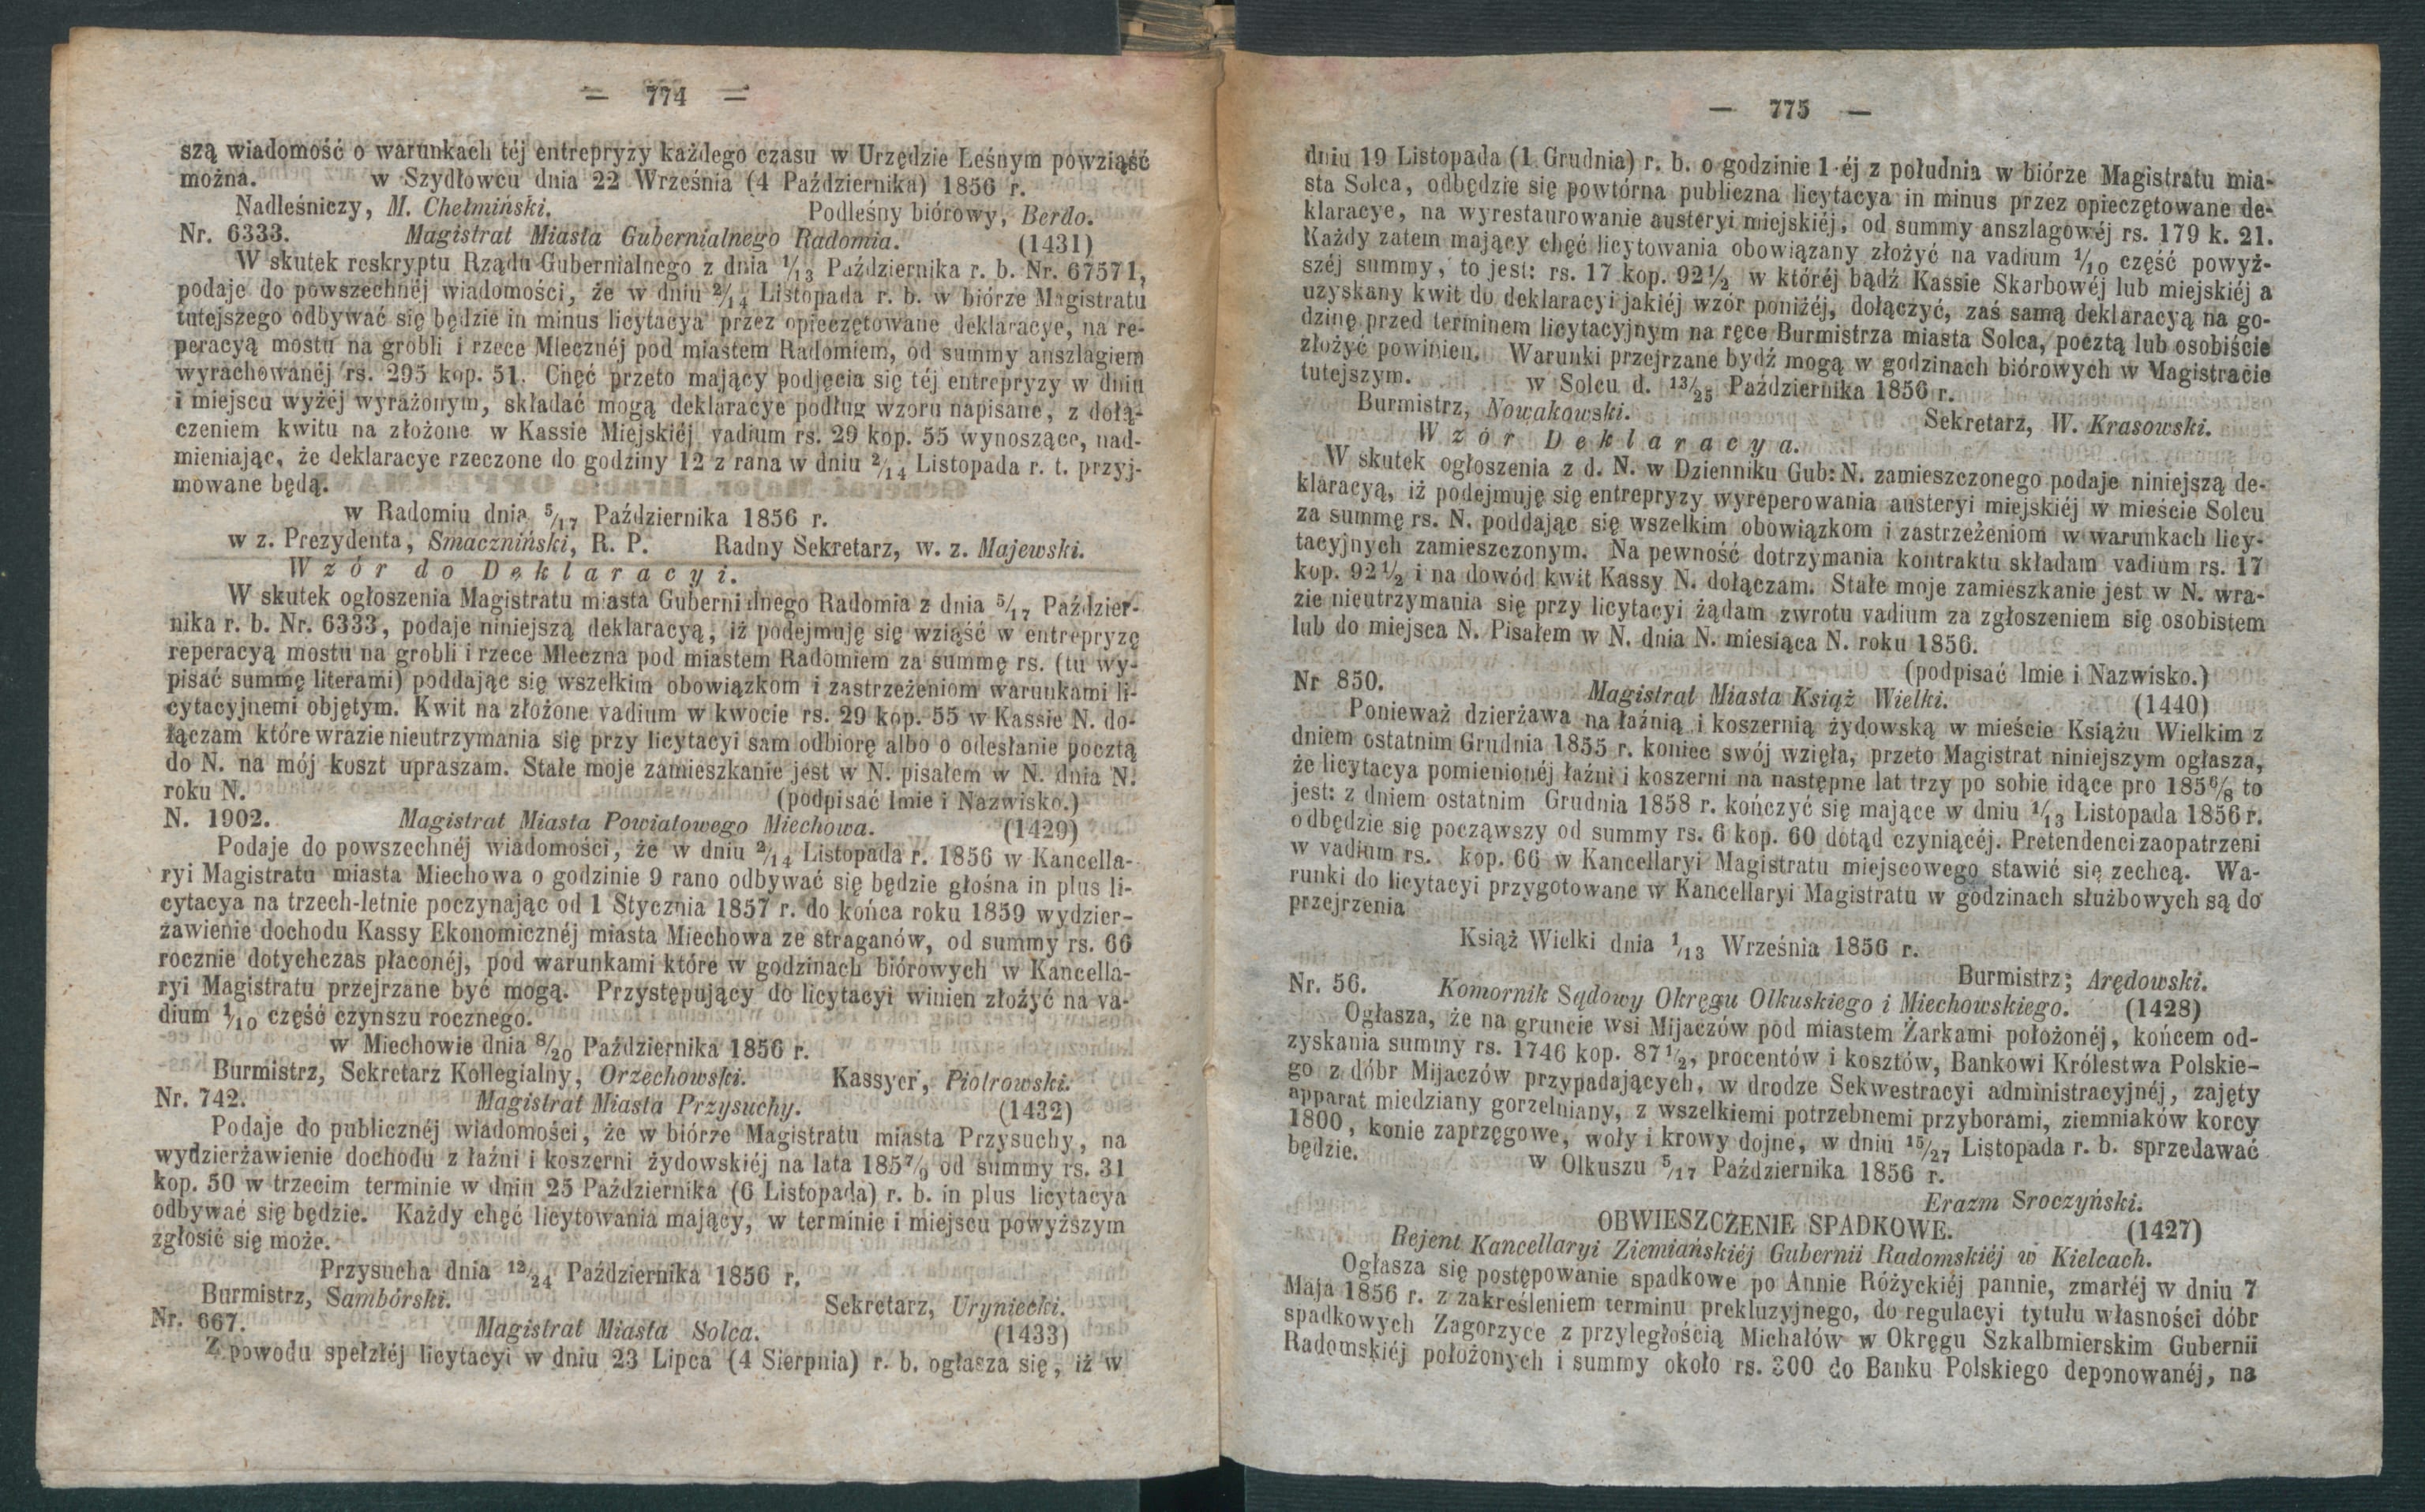 — 774 —
szą wiadomość o warunkach téj entrepryzy każdego czasu w Urzędzie Leśnym powziąść
można. w Szydłowcu dnia 22 Września (4 Października) 1856 r.
Nadleśniczy, M. Chełmiński. Podleśny biórowy, Berdo.
Nr. 6333. Magistrat Miasta Gubernialnego Radomia. (1431)
W skutek reskryptu Rządu Gubernialnego z dnia 1/13 Października r. b. Nr. 67571,
podaje do powszechnéj wiadomości, że w dniu 2/14 Listopada r. b. w biórze Magistratu
tutejszego odbywać się będzie in minus licytacya przez opieczętowane deklaracye, na re-
peracyą mostu na grobli i rzece Mlecznéj pod miastem Radomiem, od summy anszlagiem
wyrachowanéj rs. 295 kop. 51. Chęć przeto mający podjęcia się téj entrepryzy w dniu
i miejscu wyżéj wyrażonym, składać mogą deklaracye podług wzoru napisane, z dołą-
czeniem kwitu na złożone w Kassie Miejskiéj vadium rs. 29 kop. 55 wynoszące, nad-
mieniając, że deklaracye rzeczone do godziny 12 z rana w dniu 2/14 Listopada r. t. przyj-
mowane będą.
w Radomiu dnia 5/17 Października 1856 r.
w z. Prezydenta, Smaczniński, R. P. Radny Sekretarz, w. z. Majewski.
Wzór do Deklaracyi.
W skutek ogłoszenia Magistratu miasta Gubernialnego Radomia z dnia 5/17 Paździer-
nika r. b. Nr. 6333, podaje niniejszą deklaracyą, iż podejmuję się wziąść w entrepryzę
reperacyą mostu na grobli i rzece Mleczna pod miastem Radomiem za summę rs. (tu wy-
pisać summę literami) poddając się wszelkim obowiązkom i zastrzeżeniom warunkami li-
cytacyjnemi objętym. Kwit na złożone vadium w kwocie rs. 29 kop. 55 w Kassie N. do-
łączam które wrazie nieutrzymania się przy licytacyi sam odbiorę albo o odesłanie pocztą
do N. na mój koszt upraszam. Stałe moje zamieszkanie jest w N. pisałem w N. dnia N.
roku N. (podpisać Imie i Nazwisko.)
N. 1902. Magistrat Miasta Powiatowego Miechowa. (1429)
Podaje do powszechnéj wiadomości, że w dniu 2/14 Listopada r. 1856 w Kancella-
ryi Magistratu miasta Miechowa o godzinie 9 rano odbywać się będzie głośna in plus li-
cytacya na trzech-letnie poczynając od 1 Stycznia 1857 r. do końca roku 1859 wydzier-
żawienie dochodu Kassy Ekonomicznéj miasta Miechowa ze straganów, od summy rs. 66
rocznie dotychczas płaconéj, pod warunkami które w godzinach biórowych w Kancella-
ryi Magistratu przejrzane być mogą. Przystępujący do licytacyi winien złożyć na va-
dium 1/10 część czynszu rocznego.
w Miechowie dnia 8/20 Października 1856 r.
Burmistrz, Sekretarz Kollegialny, Orzechowski. Kassyer, Piotrowski.
Nr. 742. Magistrat Miasta Przysuchy. (1432)
Podaje do publicznéj wiadomości, że w biórze Magistratu miasta Przysuchy, na
wydzierżawienie dochodu z łaźni i koszerni żydowskiéj na lata 1857/9 od summy rs. 31
kop. 50 w trzecim terminie w dniu 25 Października (6 Listopada) r. b. in plus licytacya
odbywać się będzie. Każdy chęć licytowania mający, w terminie i miejscu powyższym
zgłosić się może.
Przysucha dnia 12/24 Października 1856 r.
Burmistrz, Sambórski. Sekretarz, Uryniecki.
Nr. 667. Magistrat Miasta Solca. (1433)
Z powodu spełzłéj licytacyi w dniu 23 Lipca (4 Sierpnia) r. b. ogłasza się, iż w
— 775 —
dniu 19 Listopada (1 Grudnia) r. b. o godzinie 1-éj z południa w biórze Magistratu mia-
sta Solca, odbędzie się powtórna publiczna licytacya in minus przez opieczętowane de-
klaracye, na wyrestaurowanie austeryi miejskiéj, od summy anszlagowéj rs. 179 k. 21.
Każdy zatem mający chęć licytowania obowiązany złożyć na vadium 1/10 część powyż-
széj summy, to jest: rs. 17 kop. 92 1/2 w któréj bądź Kassie Skarbowéj lub miejskiéj a
uzyskany kwit do deklaracyi jakiéj wzór poniżéj, dołączyć, zaś samą deklaracyą na go-
dzinę przed terminem licytacyjnym na ręce Burmistrza miasta Solca, pocztą lub osobiście
złożyć powinien. Warunki przejrzane bydź mogą w godzinach biórowych w Magistracie
tutejszym. w Solcu d. 13/25 Października 1856 r.
Burmistrz, Nowakowski. Sekretarz, W. Krasowski.
Wzór Deklaracya.
W skutek ogłoszenia z d. N. w Dzienniku Gub: N. zamieszczonego podaje niniejszą de-
klaracyą, iż podejmuję się entrepryzy wyreperowania austeryi miejskiéj w mieście Solcu
za summę rs. N. poddając się wszelkim obowiązkom i zastrzeżeniom w warunkach licy-
tacyjnych zamieszczonym. Na pewność dotrzymania kontraktu składam vadium rs. 17
kop. 92 1/2 i na dowód kwit Kassy N. dołączam. Stałe moje zamieszkanie jest w N. wra-
zie nieutrzymania się przy licytacyi żądam zwrotu vadium za zgłoszeniem się osobistem
lub do miejsca N. Pisałem w N. dnia N. miesiąca N. roku 1856.
(podpisać Imie i Nazwisko.)
Nr 850. Magistrat Miasta Książ Wielki. (1440)
Ponieważ dzierżawa na łaźnią i koszernią żydowską w mieście Książu Wielkim z
dniem ostatnim Grudnia 1855 r. koniec swój wzięła, przeto Magistrat niniejszym ogłasza,
że licytacya pomienionéj łaźni i koszerni na następne lat trzy po sobie idące pro 1856/8 to
jest: z dniem ostatnim Grudnia 1858 r. kończyć się mające w dniu 1/13 Listopada 1856 r.
odbędzie się począwszy od summy rs. 6 kop. 60 dotąd czyniącéj. Pretendenci zaopatrzeni
w vadium rs. kop. 66 w Kancellaryi Magistratu miejscowego stawić się zechcą. Wa-
runki do licytacyi przygotowane w Kancellaryi Magistratu w godzinach służbowych są do
przejrzenia
Książ Wielki dnia 1/13 Września 1856 r.
Burmistrz; Arędowski.
Nr. 56. Komornik Sądowy Okręgu Olkuskiego i Miechowskiego. (1428)
Ogłasza, że na gruncie wsi Mijaczów pod miastem Żarkami położonéj, końcem od-
zyskania summy rs. 1746 kop. 87 1/2, procentów i kosztów, Bankowi Królestwa Polskie-
go z dóbr Mijaczów przypadających, w drodze Sekwestracyi administracyjnéj, zajęty
apparat miedziany gorzelniany, z wszelkiemi potrzebnemi przyborami, ziemniaków korcy
1800, konie zaprzęgowe, woły i krowy dojne, w dniu 15/27 Listopada r. b. sprzedawać
będzie. w Olkuszu 5/17 Października 1856 r.
Erazm Sroczyński.
OBWIESZCZENIE SPADKOWE. (1427)
Rejent Kancellaryi Ziemiańskiéj Gubernii Radomskiéj w Kielcach.
Ogłasza się postępowanie spadkowe po Annie Różyckiéj pannie, zmarłéj w dniu 7
Maja 1856 r. z zakreśleniem terminu prekluzyjnego, do regulacyi tytułu własności dóbr
spadkowych Zagorzyce z przyległością Michałów w Okręgu Szkalbmierskim Gubernii
Radomskiéj położonych i summy około rs. 300 do Banku Polskiego deponowanéj, na